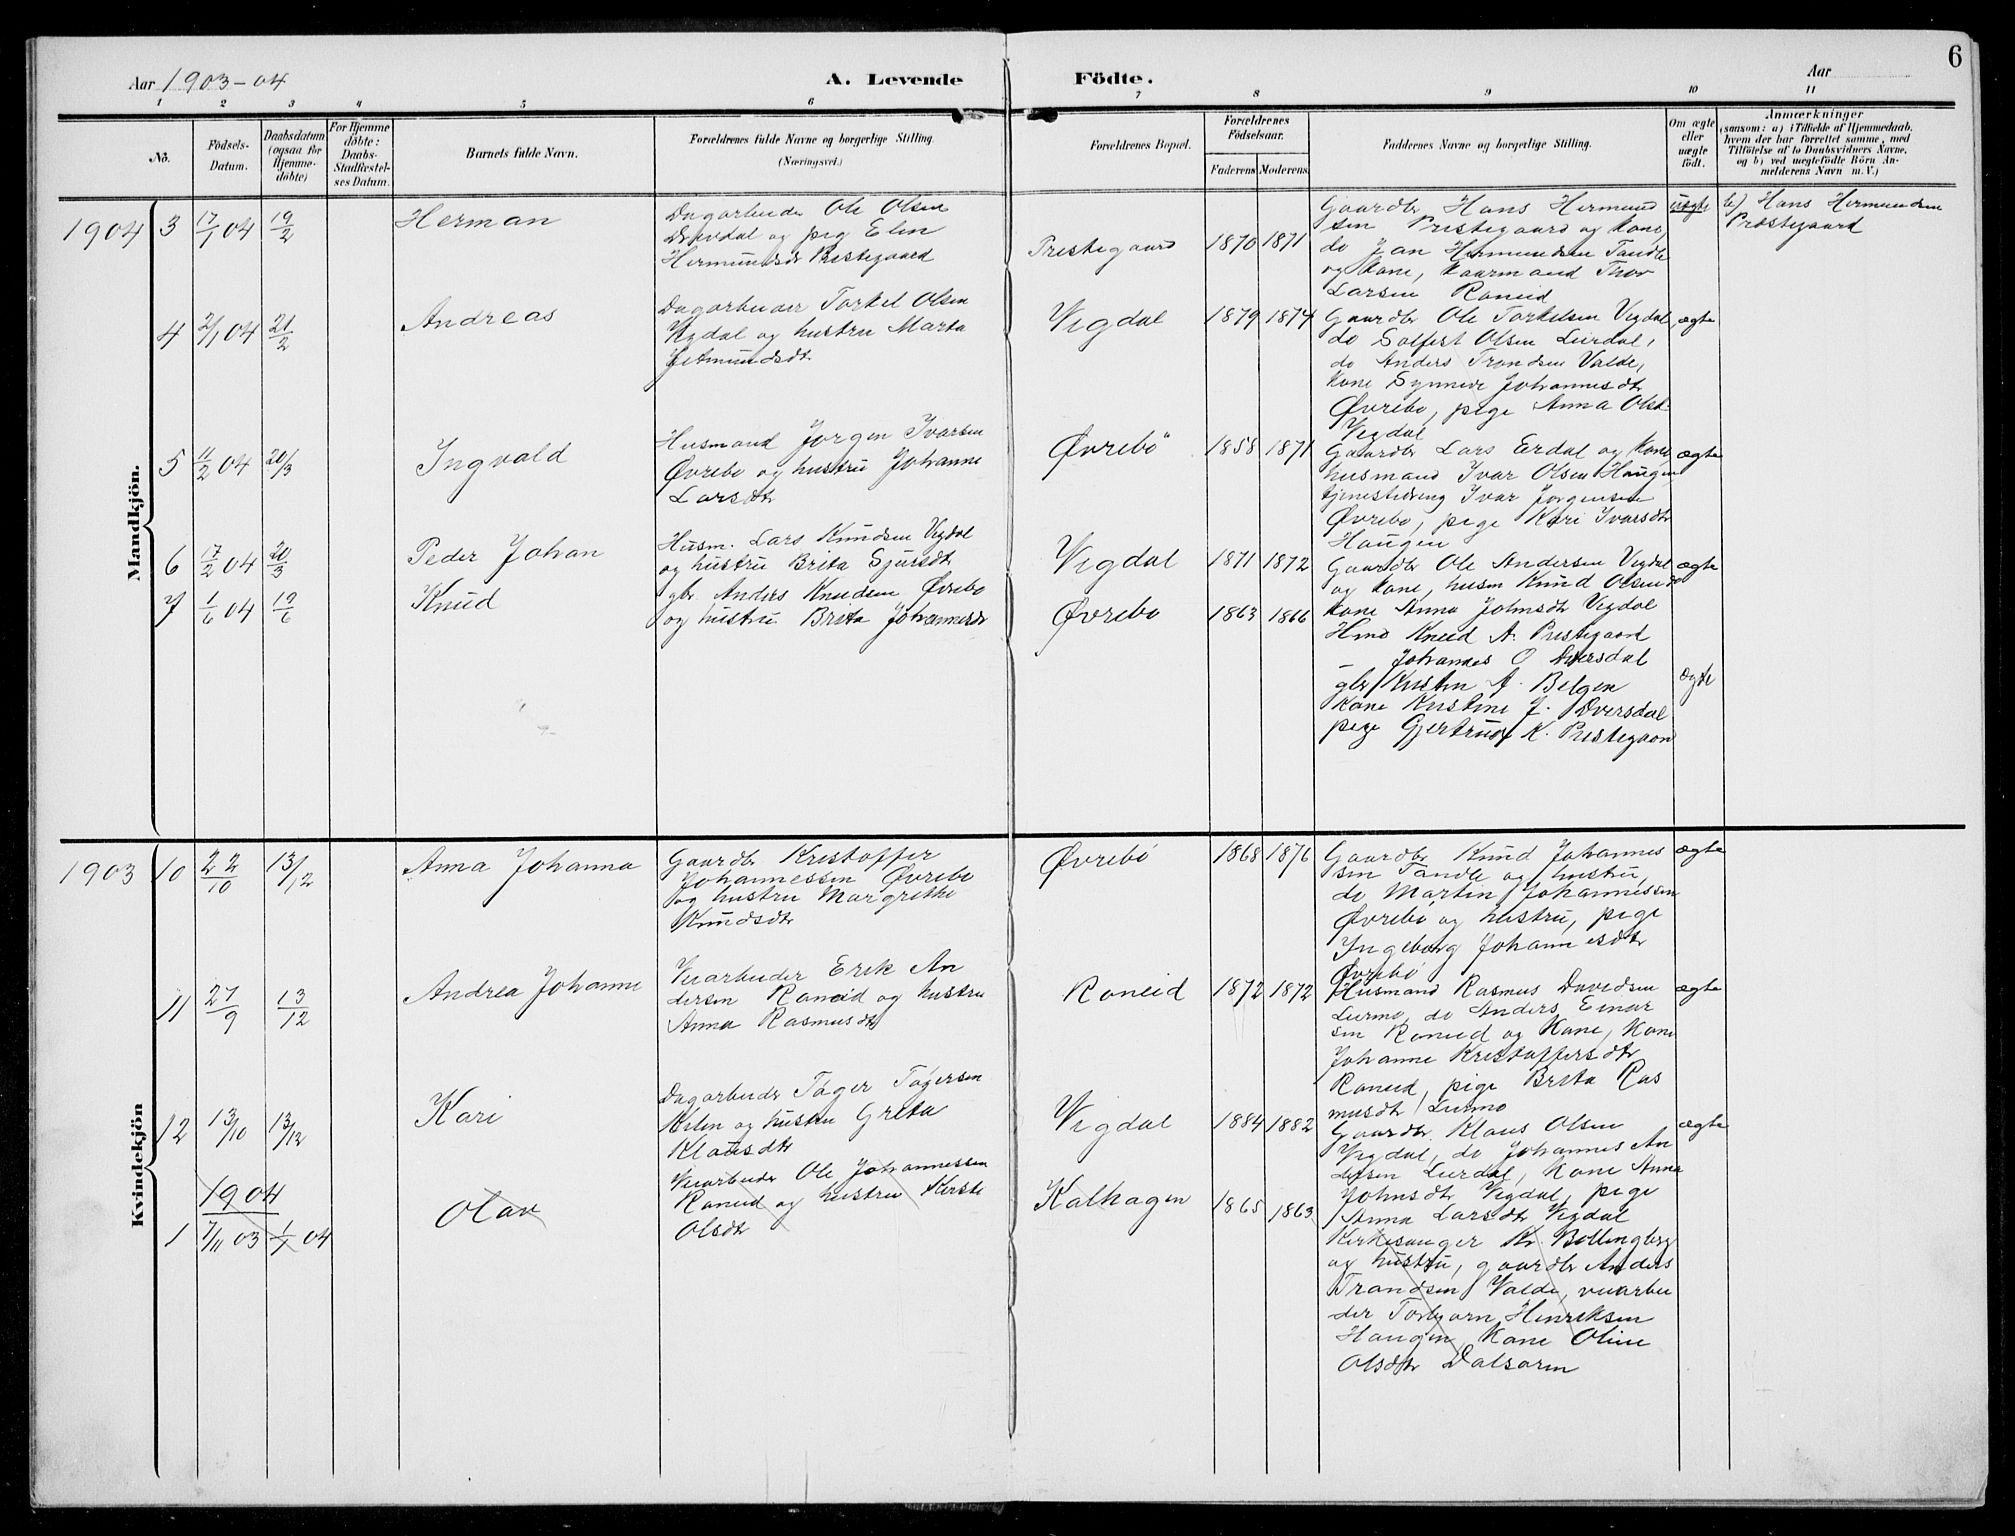 6
Aar 1903-04
A. Levende
Födte.
Aar
1 2 3 4 5 6 7 8 9 10 11
No.
Födsels-
Datum.
Daabsdatum
(ogsaa for
Hjemme-
döbte)
For Hjemme
döbte:
Daabs-
Stadfæstel-
ses Datum.
Barnets fulde Navn.
Forældrenes fulde Navne og borgerlige Stilling.
(Næringsvei.)
Forældrenes Bopæl.
Forældrenes
Födselsaar.
Faderens Moderens
Faddernes Navne og borgerlige Stilling.
Om ægte
eller
uægte
födt.
Anmærkninger
(saasom: a) i Tilfælde af Hjemmedaab,
hvem der har forrettet samme, med
Tilföielse af to Daabsvidners Navne,
og b) ved uægtefödte Börn An-
melderens Navn m. V.)
Mandkjön.
1904 3 17/1 04 19/2
Herman
Dagarbeider Ole Olsen
og pige Elen
Hermundsdr Prestegaard
Prestegaard
1870 1871
Gaardbr Hans Hermund
sen Prestegaard og kone,
do Jan Hermundsen Tandle
og kone, kaarmand Thor
Larsen Roneid
uægte
b) Hans Hermundsen
Prestegaard
4 2/1 04 21/2
Andreas
Dagarbeider Torkel Olsen
Vigdal og hustru Marta
Hermundsdtr
Vigdal
1879 1874
Gaardbr Ole Torkelsen Vigdal,
do Solfest Olsen Leirdal,
do Anders Trondsen Valde,
kone Synneve Johannesdtr
Øvrebø, pige Anna Olsd
Vigdal
ægte
5 11/2 04 20/3
Ingvald
Husmand Jørgen Ivarsen
Øvrebø og hustru Johanne
Larsdtr
Øvrebö
1858 1871
Gaardbr Lars Erdal og kone,
husmand Ivar Olsen Haugen
tjenestedreng Ivar Jørgensen
Øvrebø, pige Kari Ivarsdtr
Haugen
ægte
6 17/2 04 20/3
Peder Johan
Husm. Lars Knudsen Vigdal
og hustru Brita Sjursdtr
Vigdal
1871 1872
Gaardbr Ole Andersen Vigdal
og kone, husm Knud Olsen do
kone Anna Johnsdtr Vigdal
ægte
7 1/6 04 19/6
Knud
gbr. Anders Knudsen Øvrebø
og hustru Brita Johannesdr
Øvrebø
1863 1866
Hmd Knud A. Prestegaard
Johannes O Dversdal
gbr Kristen A. Belgen
kone Kristine J. Dversdal
pige Gjertrud K. Prestegaard
ægte
Kvindekjön
1903 10 22/10 13/12
Anna Johanna
Gaardbr Kristoffer
Johannessen Øvrebø
og hustru Margrethe
Knudsdtr
Øvrebö
1868 1876
Gaardbr Knud Johannes
sen Tandle og hustru,
do Martin Johannessen
Øvrebö og hustru, pige
Ingeborg Johannesdtr
Øvrebö
ægte
11 27/9 13/12
Andrea Johanne
Veiarbeider Erik An
dersen Roneid og hustru
Anna Rasmusdtr
Roneid
1872 1872
Husmand Rasmus Davidsen
Lurmo, do Anders Einar
sen Roneid og kone, kone
Johanne Kristoffersdtr
Roneid, pige Brita Ras
musdtr Lurmo
ægte
12 13/10 13/12
Kari
Dagarbeider Tøger Tøgersen
og hustru Greta
Klausdtr
Vigdal
1884 1882
Gaardbr. Klaus Olsen
Vigdal, do Johannes An
dersen Leirdal, kone Anna
Johnsdtr Vigdal, pige
Anna Larsdtr Vigdal
ægte
1904
1 7/11 03 1/1 04
Olav
Veiarbeider Ole Johannessen
Roneid og hustru Kirsti
Olsdtr
Kalhagen
1865 1863
Kirkesanger Kr. Bollingberg
og hustru, gaardbr Anders
Trondsen Valde, veiarbei
der Torbjørn Henriksen
Haugen, kone Oline
Olsdtr Dalsøren